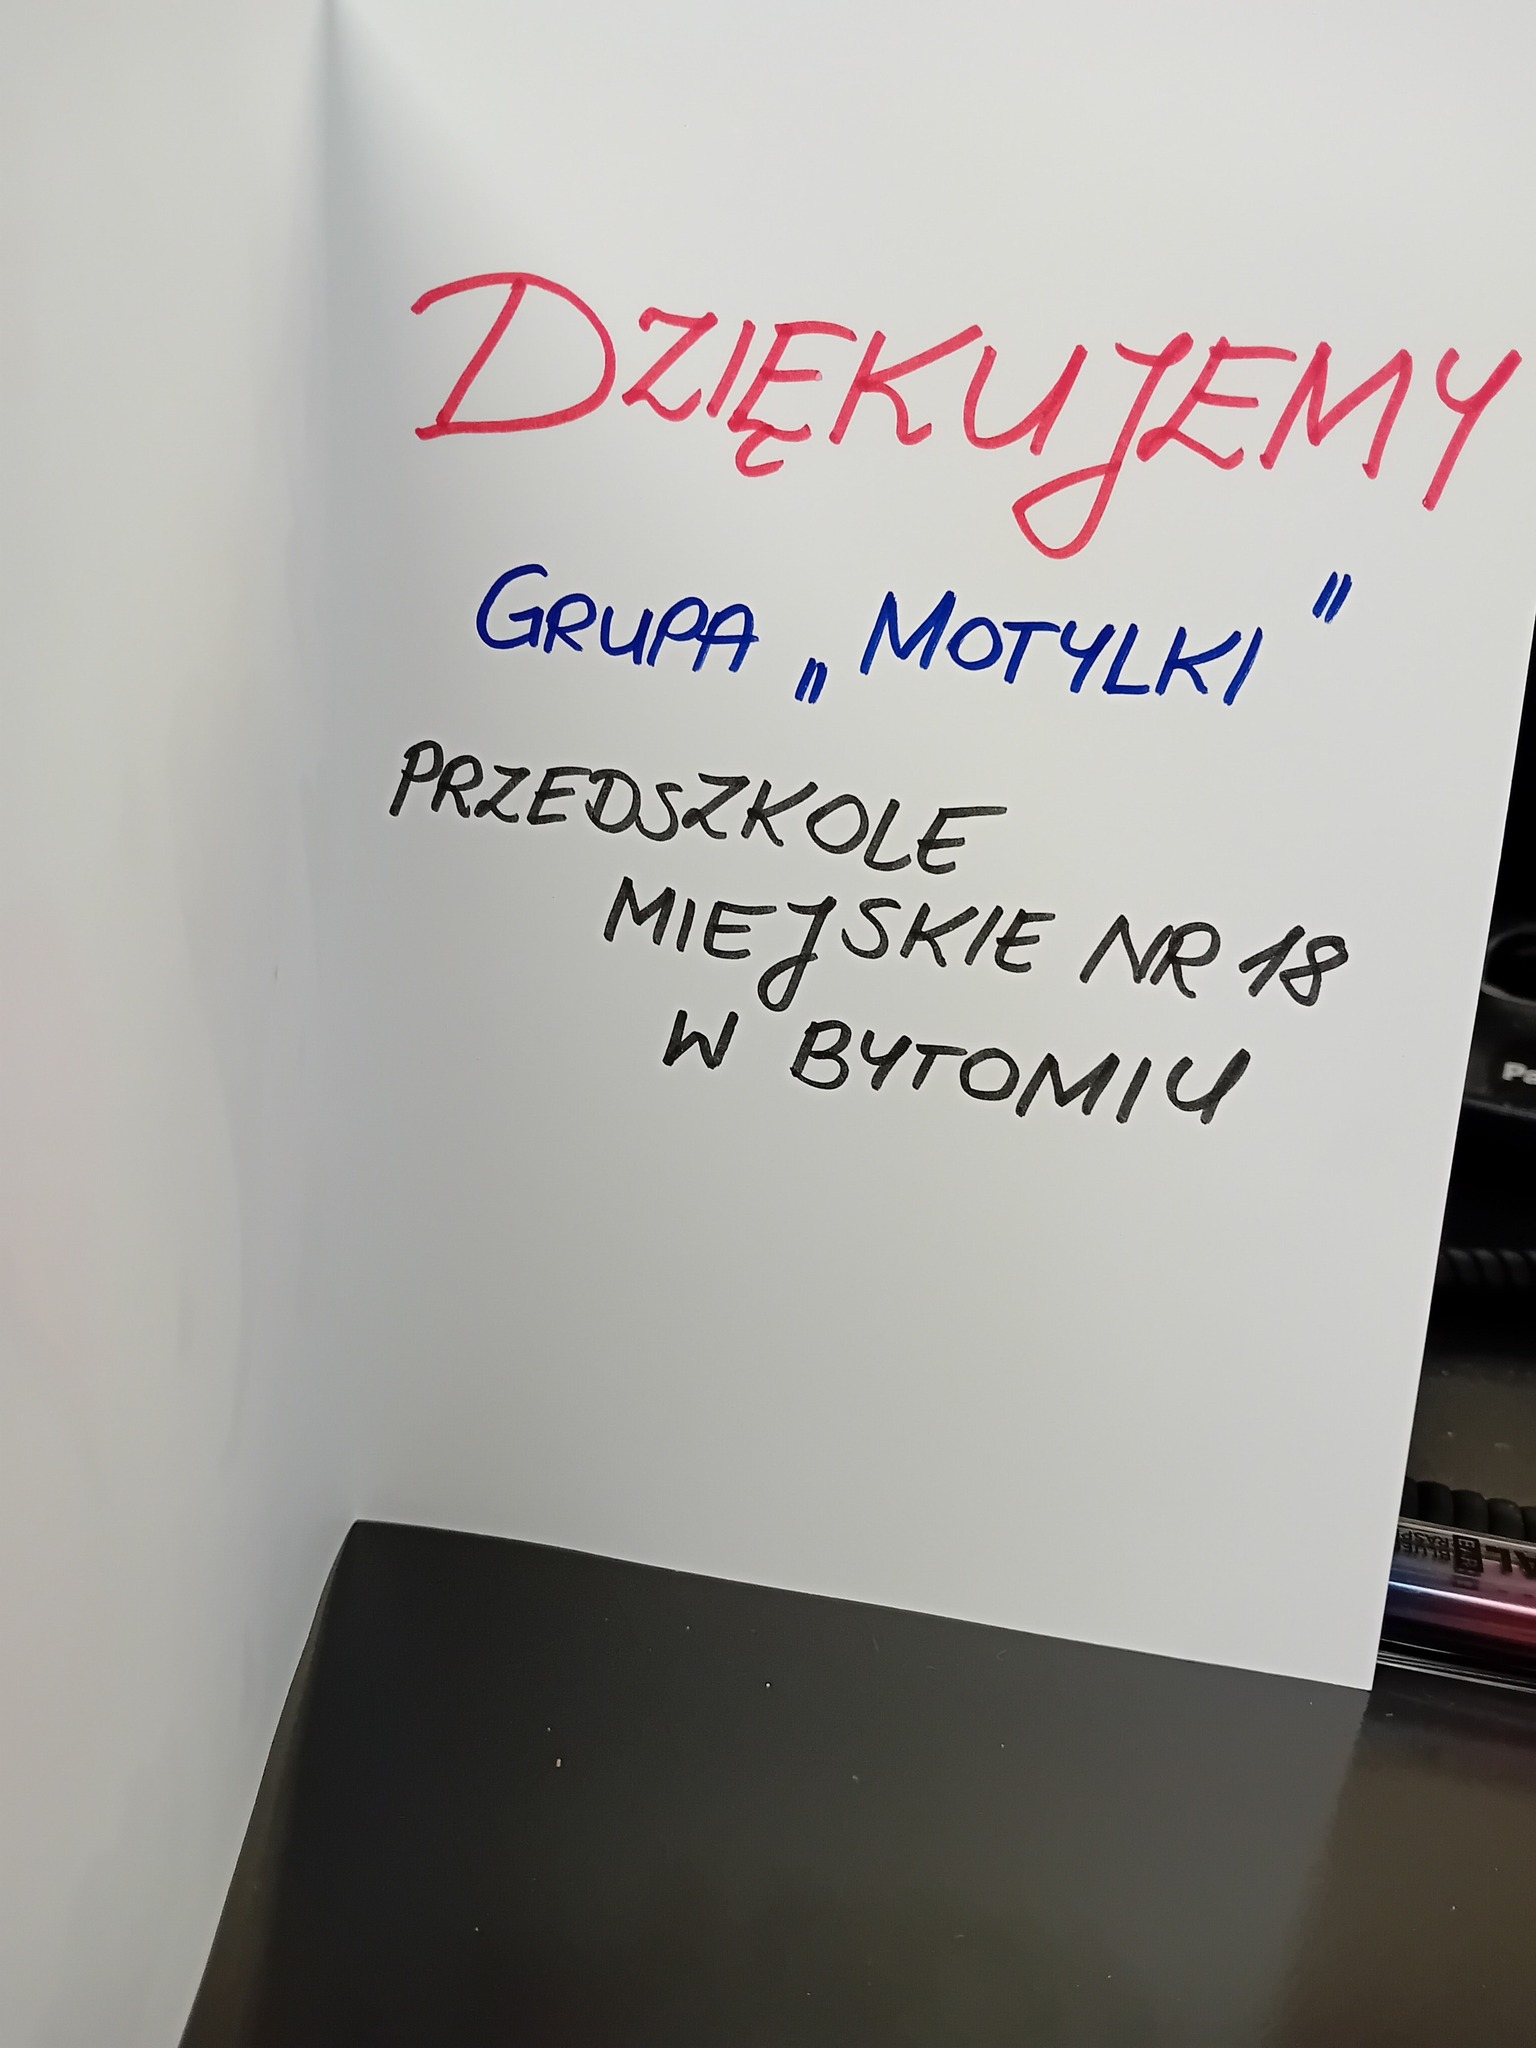 DZIĘKUJEMY
GRUPA „MOTYLKI"
PRZEDSZKOLE
MIEJSKIE NR 18
W BYTOMIU